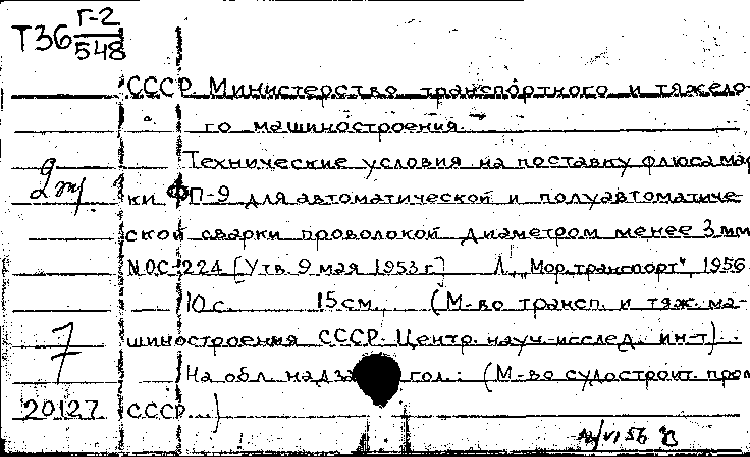 Т36 Г-2/548
СССР. Министерство транспортного и тяжело
го машиностроения.
Технические условия на поставку флюса мар
2 экз. ки ФП-9 для автоматической и полуавтоматиче-
ской сварки проволокой диаметром менее 3 мм
№ ОС-1224 [Утв. 9 мая 1953 г.] Л., "Мор. транспорт", 1956
10 с. 15 см. (М-во трансп. и тяж. ма-
7 шиностроения СССР. Центр. науч-исслед. ин-т)..
На обл. надзаг гол.: (М-во судостроит. пром
20127 СССР...)
VI 56